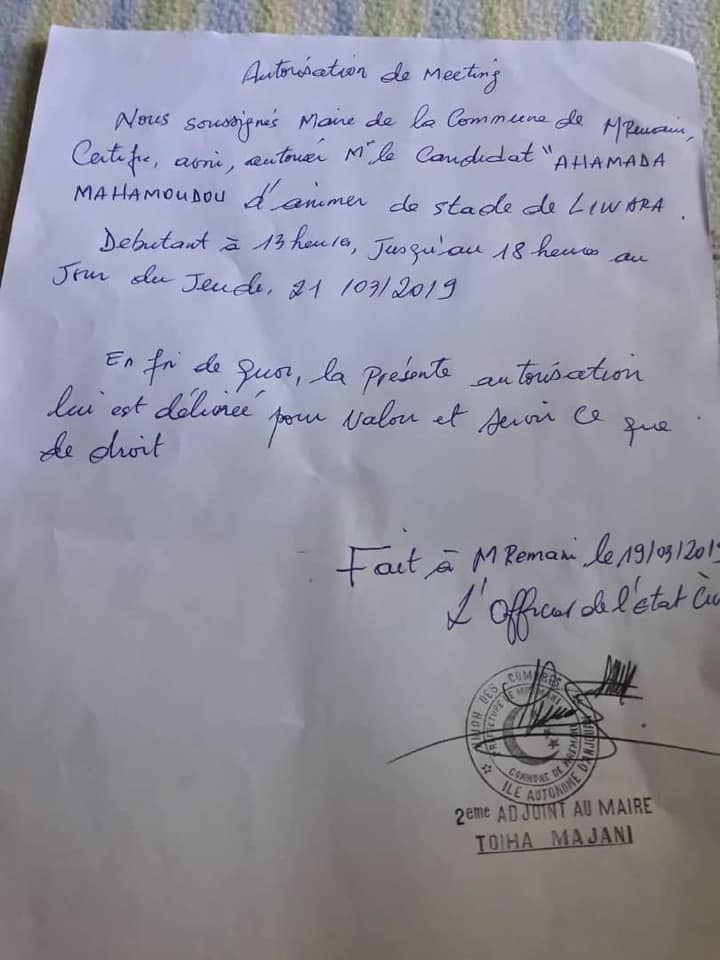 Autorisation de Meeting
Nous soussignés Maire de la Commune de MRemani,
Certifie, avoir, autorisé Mr le Candidat "AHAMADA
MAHAMOUDOU d'animer de stade de LIWARA.
Debutant à 13 heures, Jusqu'au 18 heures au
Jour du Jeudi, 21 /03/2019
En foi de quoi, la présente autorisation
lui est délivrée pour valoir et servir ce que
de droit
Fait à MRemani, le 19/03/2019
L'Officier de l'état Civ
UNION DES COMORES
ILE AUTONOME D'ANJOUAN
PREFECTURE DE MREMANI
COMMUNE DE MREMANI
2eme ADJOINT AU MAIRE
TOIHA MAJANI